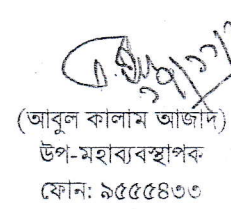 (আবুল কালাম আজাদ)
উপ-মহাব্যবস্থাপক
ফোন: ৯৫৫৫৪৩৩